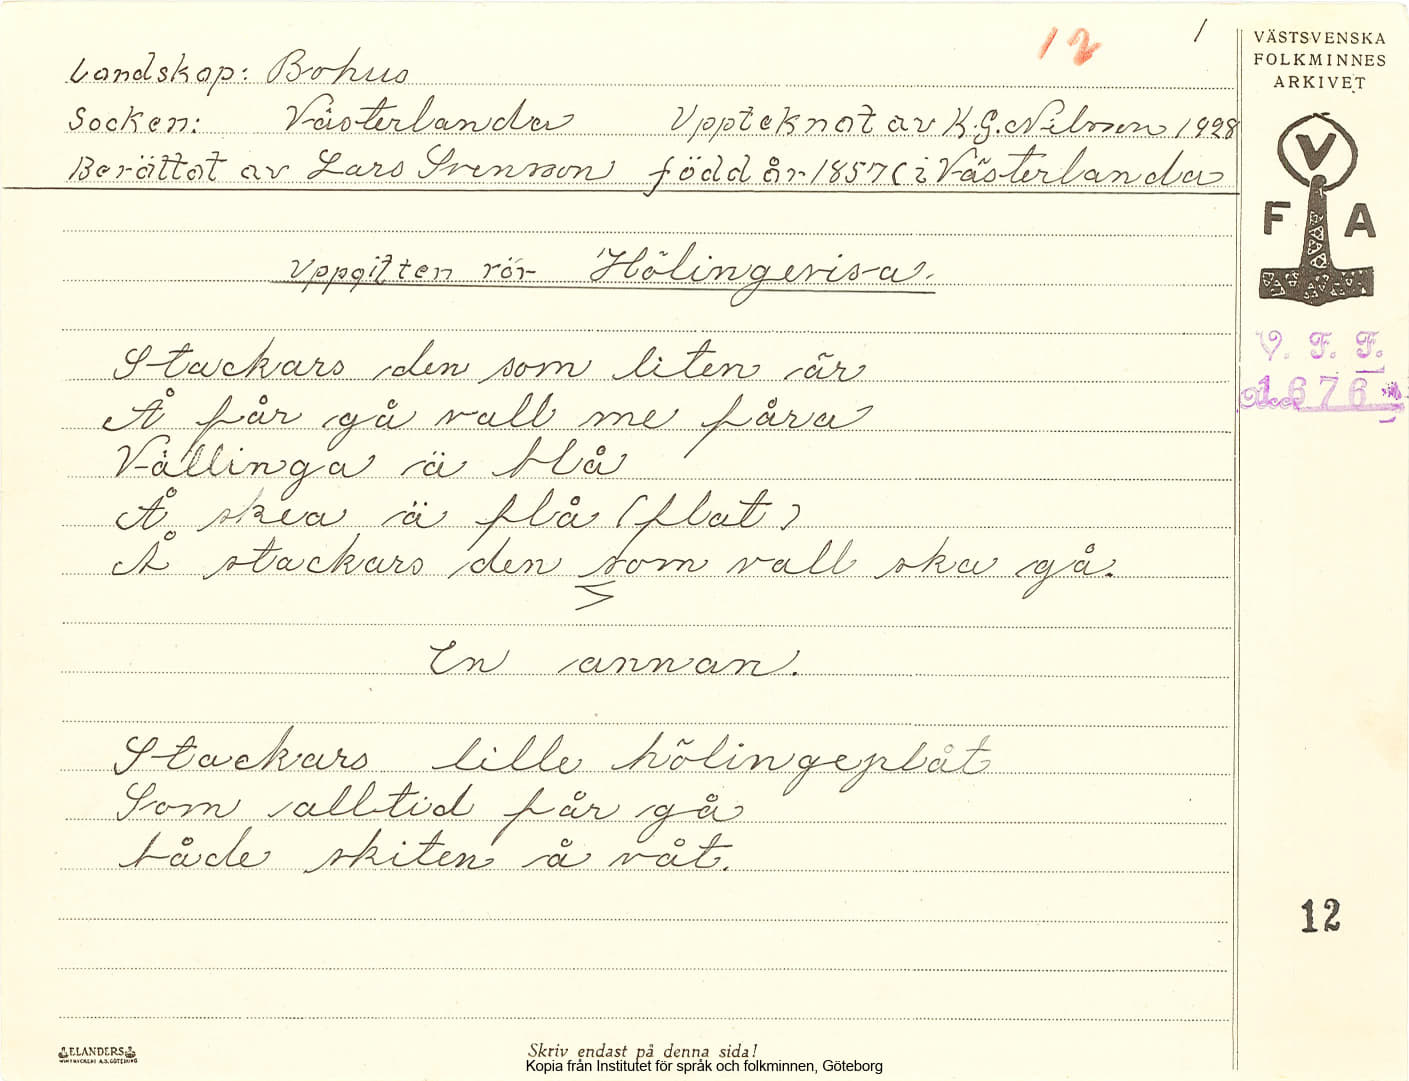 12
1
VÄSTSVENSKA
FOLKMINNES
ARKIVET
Landskap: Bohus
Socken: Västerlanda Upptecknat av K.G. Nilsson 1928
Berättat av Lars Svensson född år 1857 i Västerlanda
V
F A
Uppgiften rör Hölingevisa.
V. F. F.
Acc. 1676
Stackars den som liten är
Å får gå vall me fåra
Vällinga ä blå
Å skea ä flå (flat)
Å stackars den som vall ska gå.
En annan.
Stackars lille hölingeplåt
Som alltid får gå
både skiten å våt.
12
ELANDERS
Skriv endast på denna sida!
Kopia från Institutet för språk och folkminnen, Göteborg